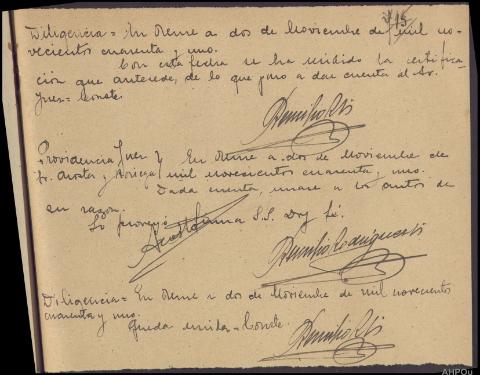 15
Diligencia = En Orense a dos de Noviembre de mil no-
vecientos cuarenta y uno.
Con esta fecha se ha recibido la certifica-
ción que antecede, de lo que paso a dar cuenta al Sr.
Juez = Conste.
Providencia Juez } En Orense a dos de Noviembre de
Sr. Acosta y Noriega } mil novecientos cuarenta y uno.
Dada cuenta, unase a los autos de
su razon.
Lo proveyó firma S.S. Doy fé.
Diligencia = En Orense a dos de Noviembre de mil novecientos
cuarenta y uno.
Queda unida = Conste.
AHPOu